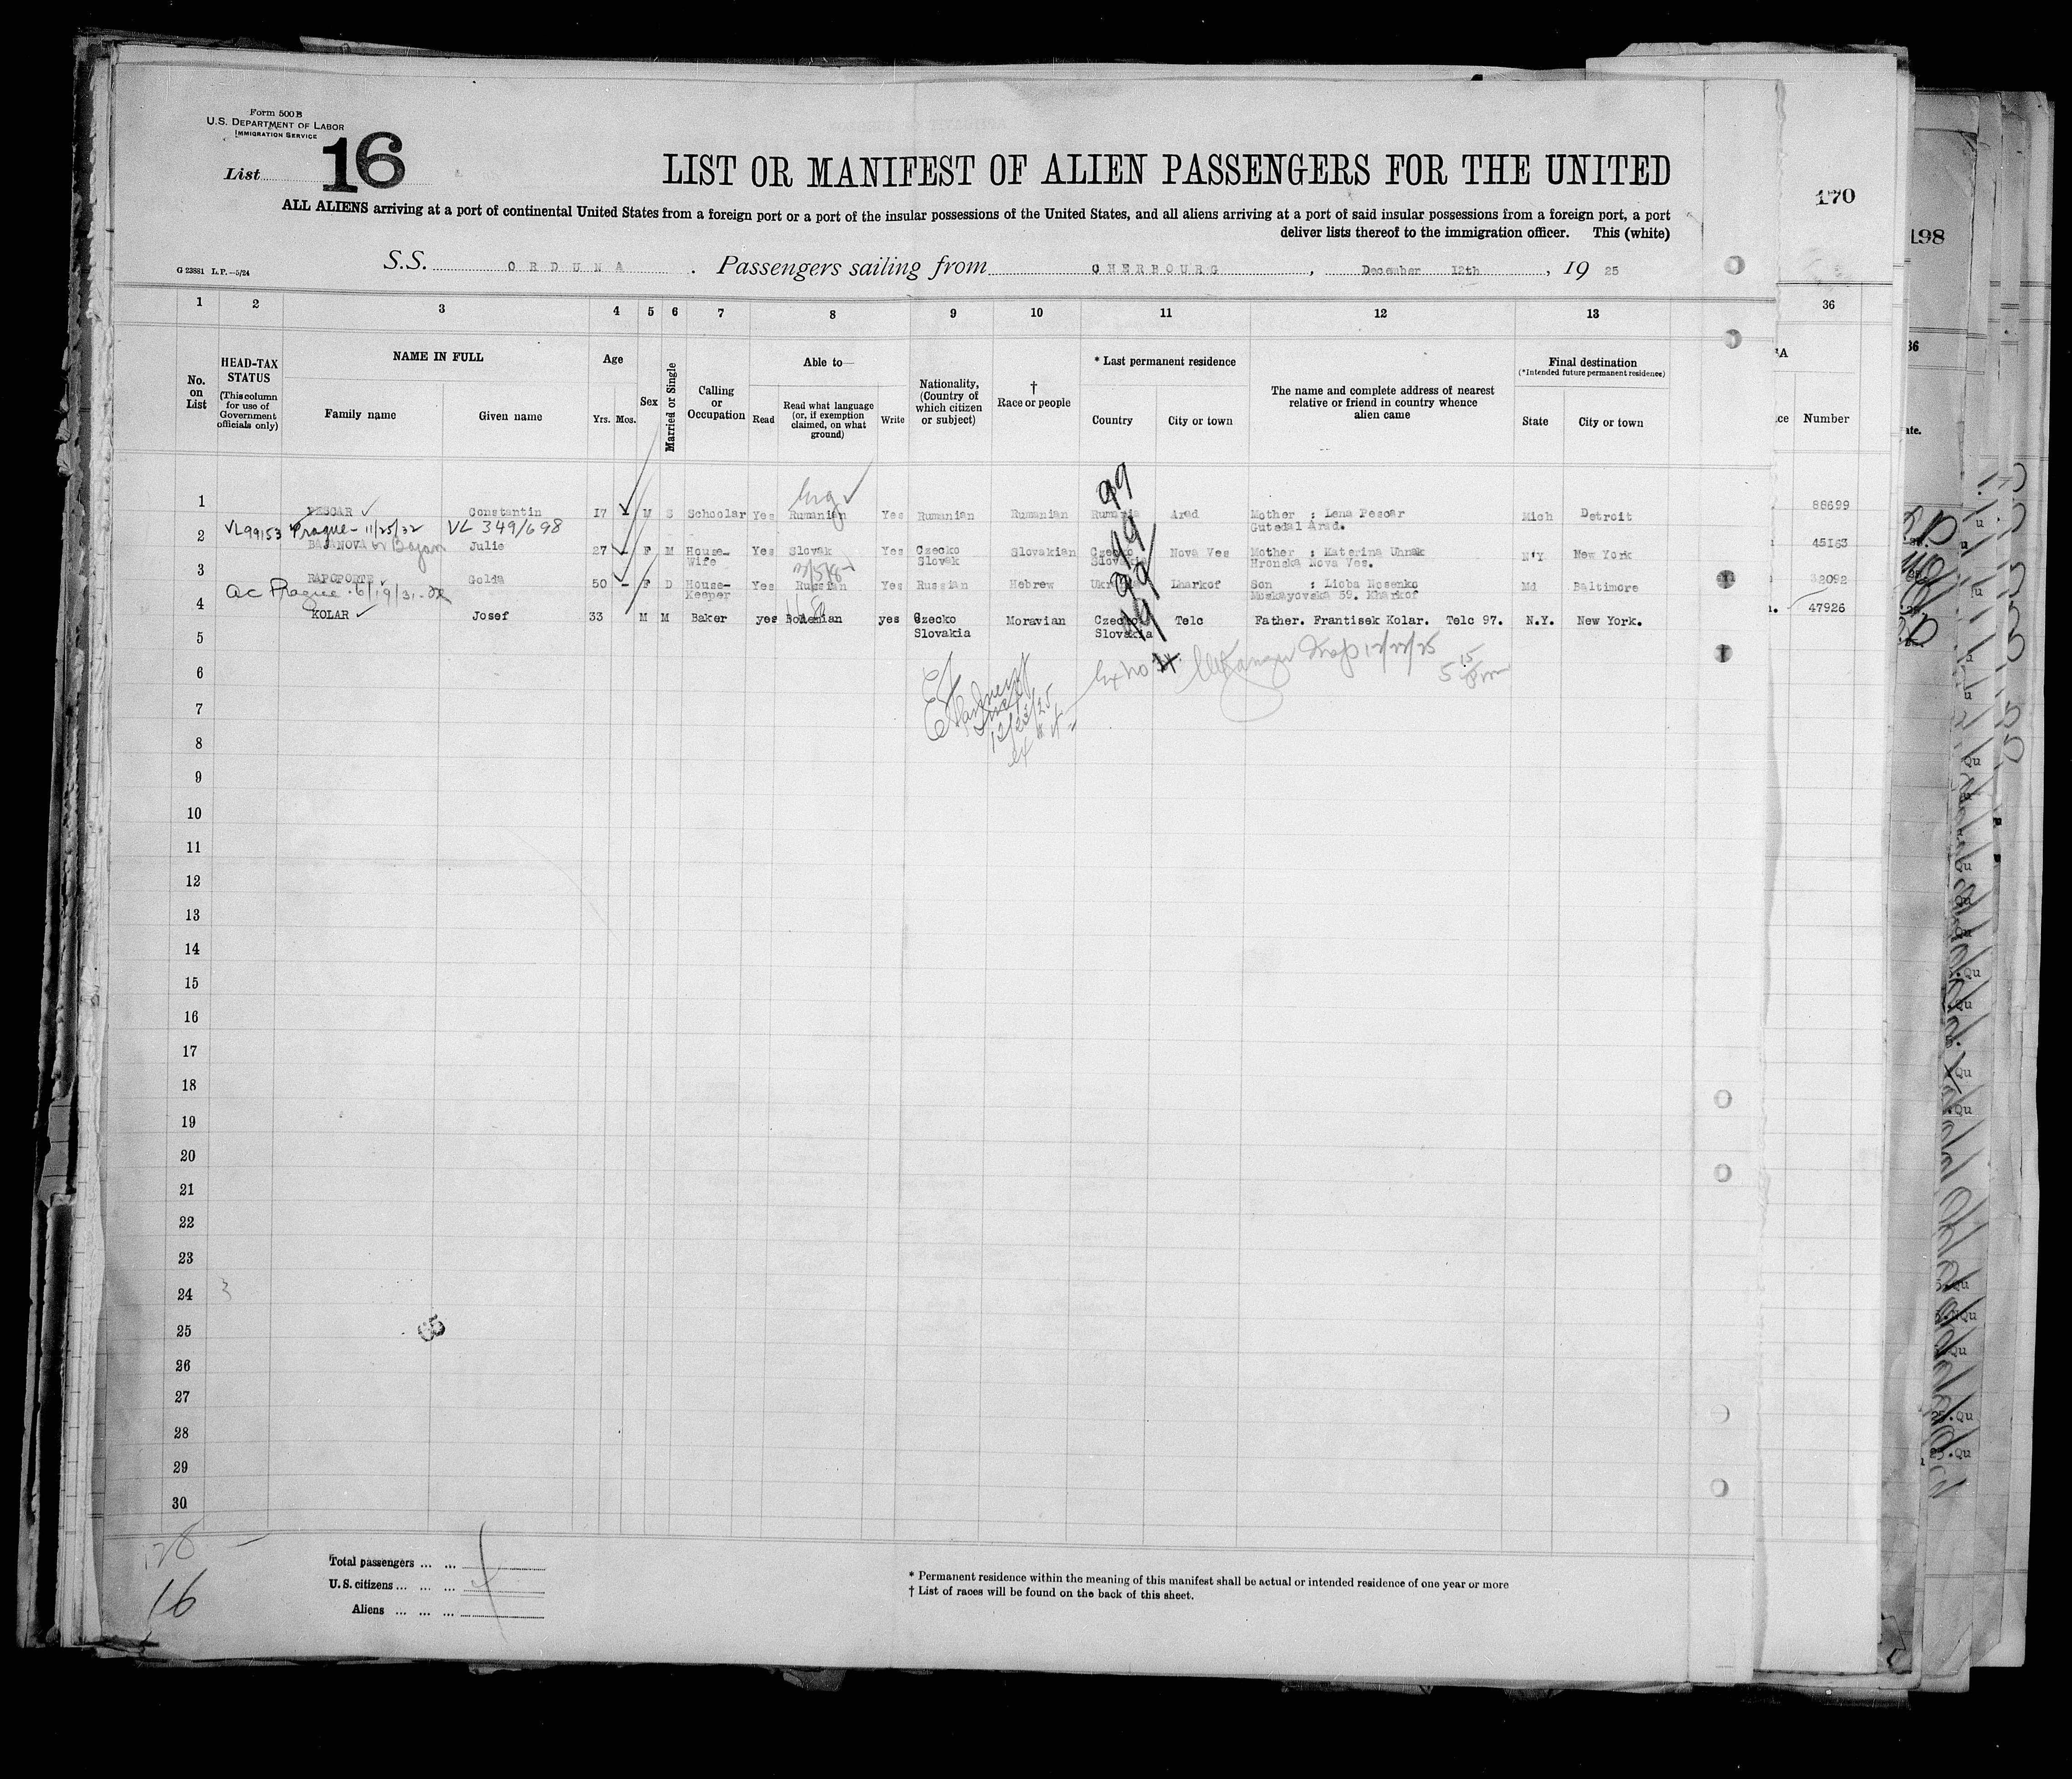 Form 500 B
U.S. DEPARTMENT OF LABOR
IMMIGRATION SERVICE
List 16
LIST OR MANIFEST OF ALIEN PASSENGERS FOR THE UNITED
ALL ALIENS arriving at a port of continental United States from a foreign port or a port of the insular possessions of the United States, and all aliens arriving at a port of said insular possessions from a foreign port, a port
deliver lists thereof to the immigration officer. This (white)
G 23881 L.P.—5/24
S.S. ORDUNA. Passengers sailing from CHERBOURG, December 12th, 19 25
170
198
1 2 3 4 5 6 7 8 9 10 11 12 13 36
No. on List
HEAD-TAX STATUS
(This column for use of Government officials only)
NAME IN FULL
Family name Given name
Age
Yrs. Mos.
Sex
Married or Single
Calling or Occupation
Able to—
Read
Read what language (or, if exemption claimed, on what ground)
Write
Nationality, (Country of which citizen or subject)
† Race or people
* Last permanent residence
Country City or town
The name and complete address of nearest relative or friend in country whence alien came
Final destination
(*Intended future permanent residence)
State City or town
Number
1 PESCAR Constantin 17 M S Schoolar Yes Rumanian Yes Rumanian Rumanian Rumania Arad Mother : Lena Pescar Mich Detroit 88699
Gutedal Arad.
VL99153 Prague - 11/25/32 VL 349/698
2 BAJANOVA or Bajan Julie 27 - F M House- Yes Slovak Yes Czecko Slovakian Czecko Nova Ves Mother : Katerina Uhnak N'Y New York 45163
Wife Slovak Slovakia Hronska Nova Ves.
3 RAPOPORTE Golda 50 - F D House- Yes Russian Yes Russian Hebrew Lharkof Son : Lioba Nosenko Md Baltimore 32092
Keeper Moskayovska 59. Kharkof
Prague. 6/19/31
4 KOLAR Josef 33 M M Baker yes Bohemian yes Czecko Moravian Czecko Telc Father. Frantisek Kolar. Telc 97. N.Y. New York. 47926
Slovakia Slovakia
99
49
99
49
5
6
12/22/25
7
12/23/25
8
9
10
11
12
13
14
15
16
17
18
19
20
21
22
23
24
25
65
26
27
28
29
30
16
Total passengers ... ...
U.S. citizens ... ... ...
Aliens ... ... ...
* Permanent residence within the meaning of this manifest shall be actual or intended residence of one year or more
† List of races will be found on the back of this sheet.